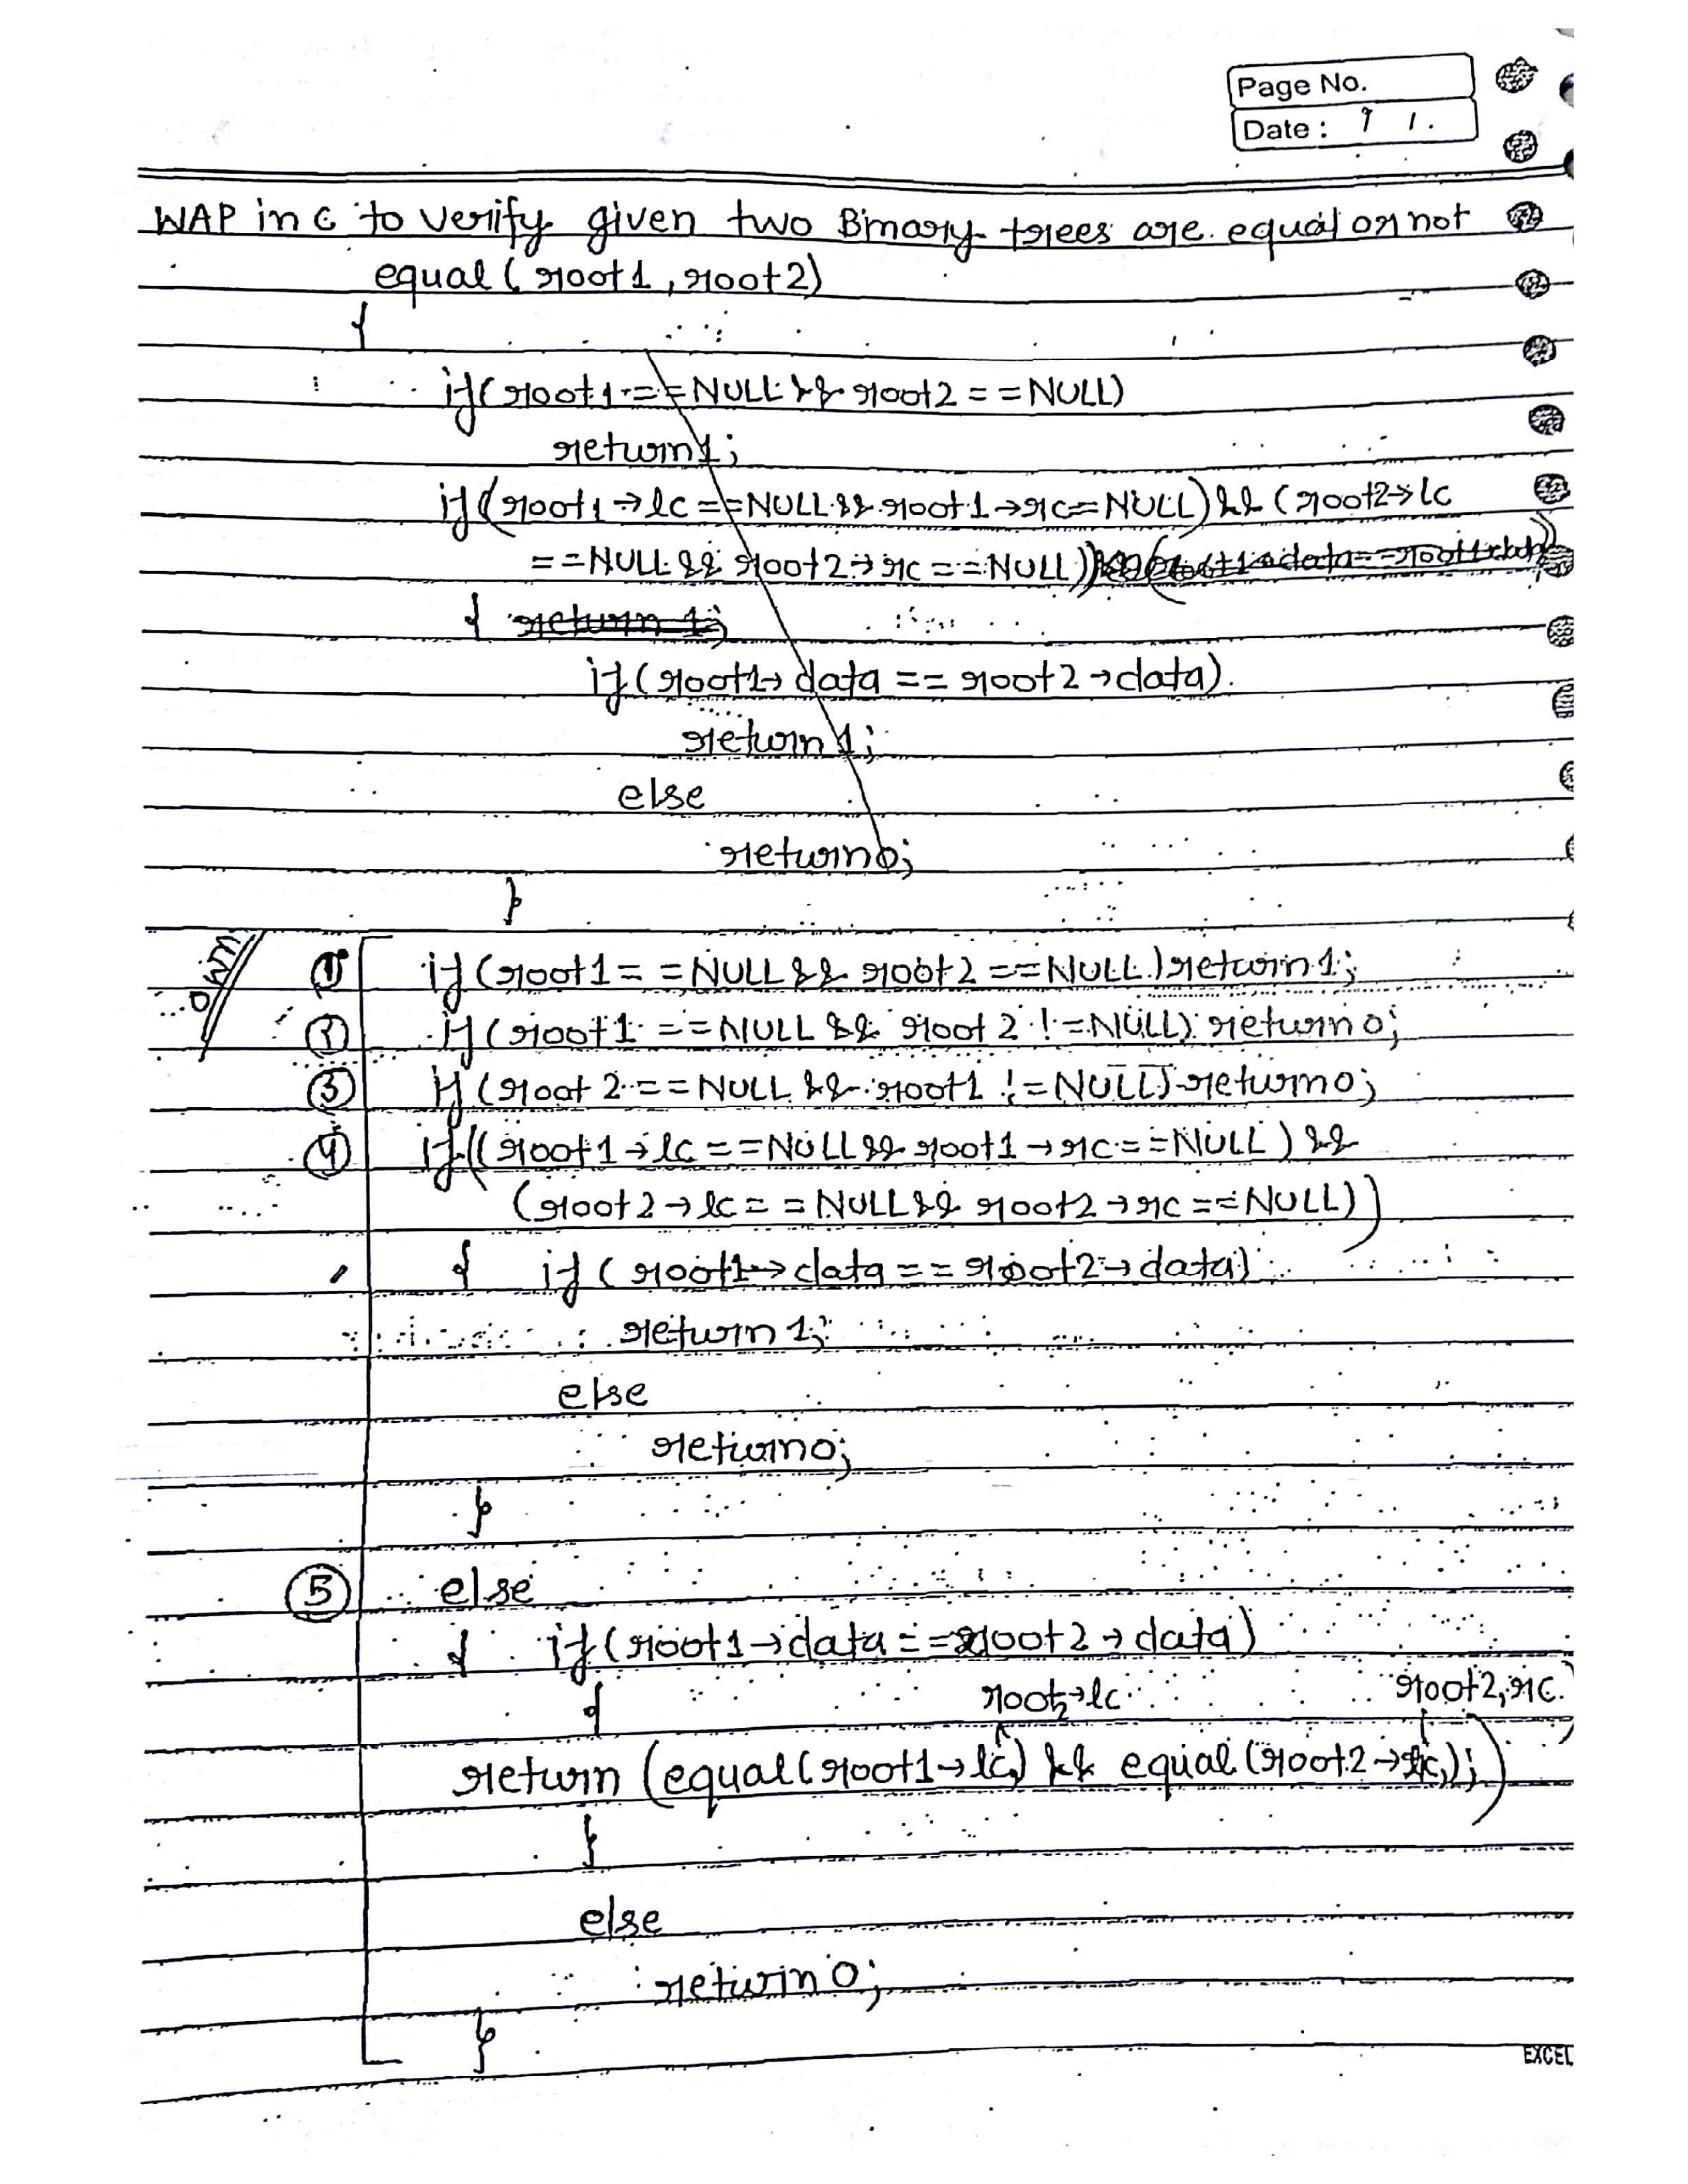 Page No.
Date :
WAP in C to verify given two Binary trees are equal or not
equal ( root1 , root2)
{
if( root1 == NULL && root2 == NULL)
return 1;
if((root1→lc == NULL && root1→rc= NULL) && ( root2→lc
== NULL && root2→rc == NULL))
{ return 1;
if( root1→ data == root2→data).
return 1;
else
return 0;
}
own
① if (root1 == NULL && root2 == NULL) return 1;
② if (root1 == NULL && root2 != NULL) return 0;
③ if (root2 == NULL && root1 != NULL) return 0;
④ if((root1→lc == NULL && root1→rc == NULL ) &&
(root2→lc == NULL && root2→rc == NULL))
{ if ( root1→ data == root2→data)
return 1;
else
return 0;
}
⑤ else
{ if(root1→data == root2→data)
{ root2→lc root2, rc.
return (equal( root1→lc,) && equal (root2→rc,);)
}
else
return 0;
}
EXCEL